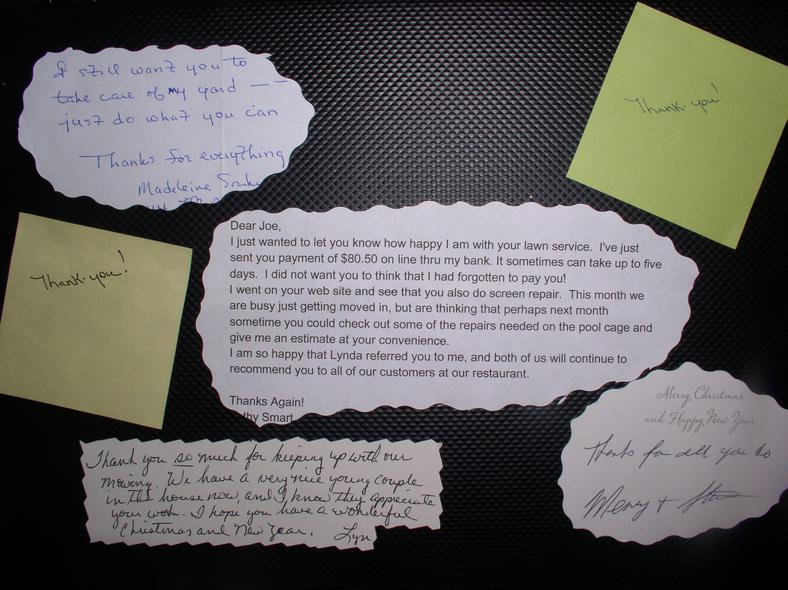 I still want you to
take care of my yard —
just do what you can
Thanks for everything
Madeleine
Thank you!
Thank you!
Dear Joe,
I just wanted to let you know how happy I am with your lawn service. I've just
sent you payment of $80.50 on line thru my bank. It sometimes can take up to five
days. I did not want you to think that I had forgotten to pay you!
I went on your web site and see that you also do screen repair. This month we
are busy just getting moved in, but are thinking that perhaps next month
sometime you could check out some of the repairs needed on the pool cage and
give me an estimate at your convenience.
I am so happy that Lynda referred you to me, and both of us will continue to
recommend you to all of our customers at our restaurant.
Thanks Again!
thy Smart
Thank you so much for keeping up with our
mowing. We have a very nice young couple
in the house now, and I know they appreciate
your work. I hope you have a wonderful
Christmas and New Year. Lyn
Merry Christmas
and Happy New Year
Thanks for all you do